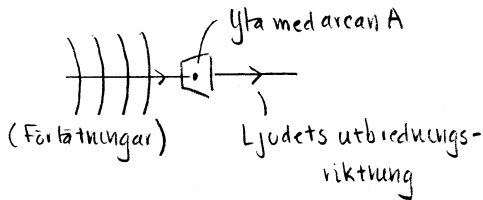 Yta med arean A
(Förtätningar)
Ljudets utbrednings-
riktning